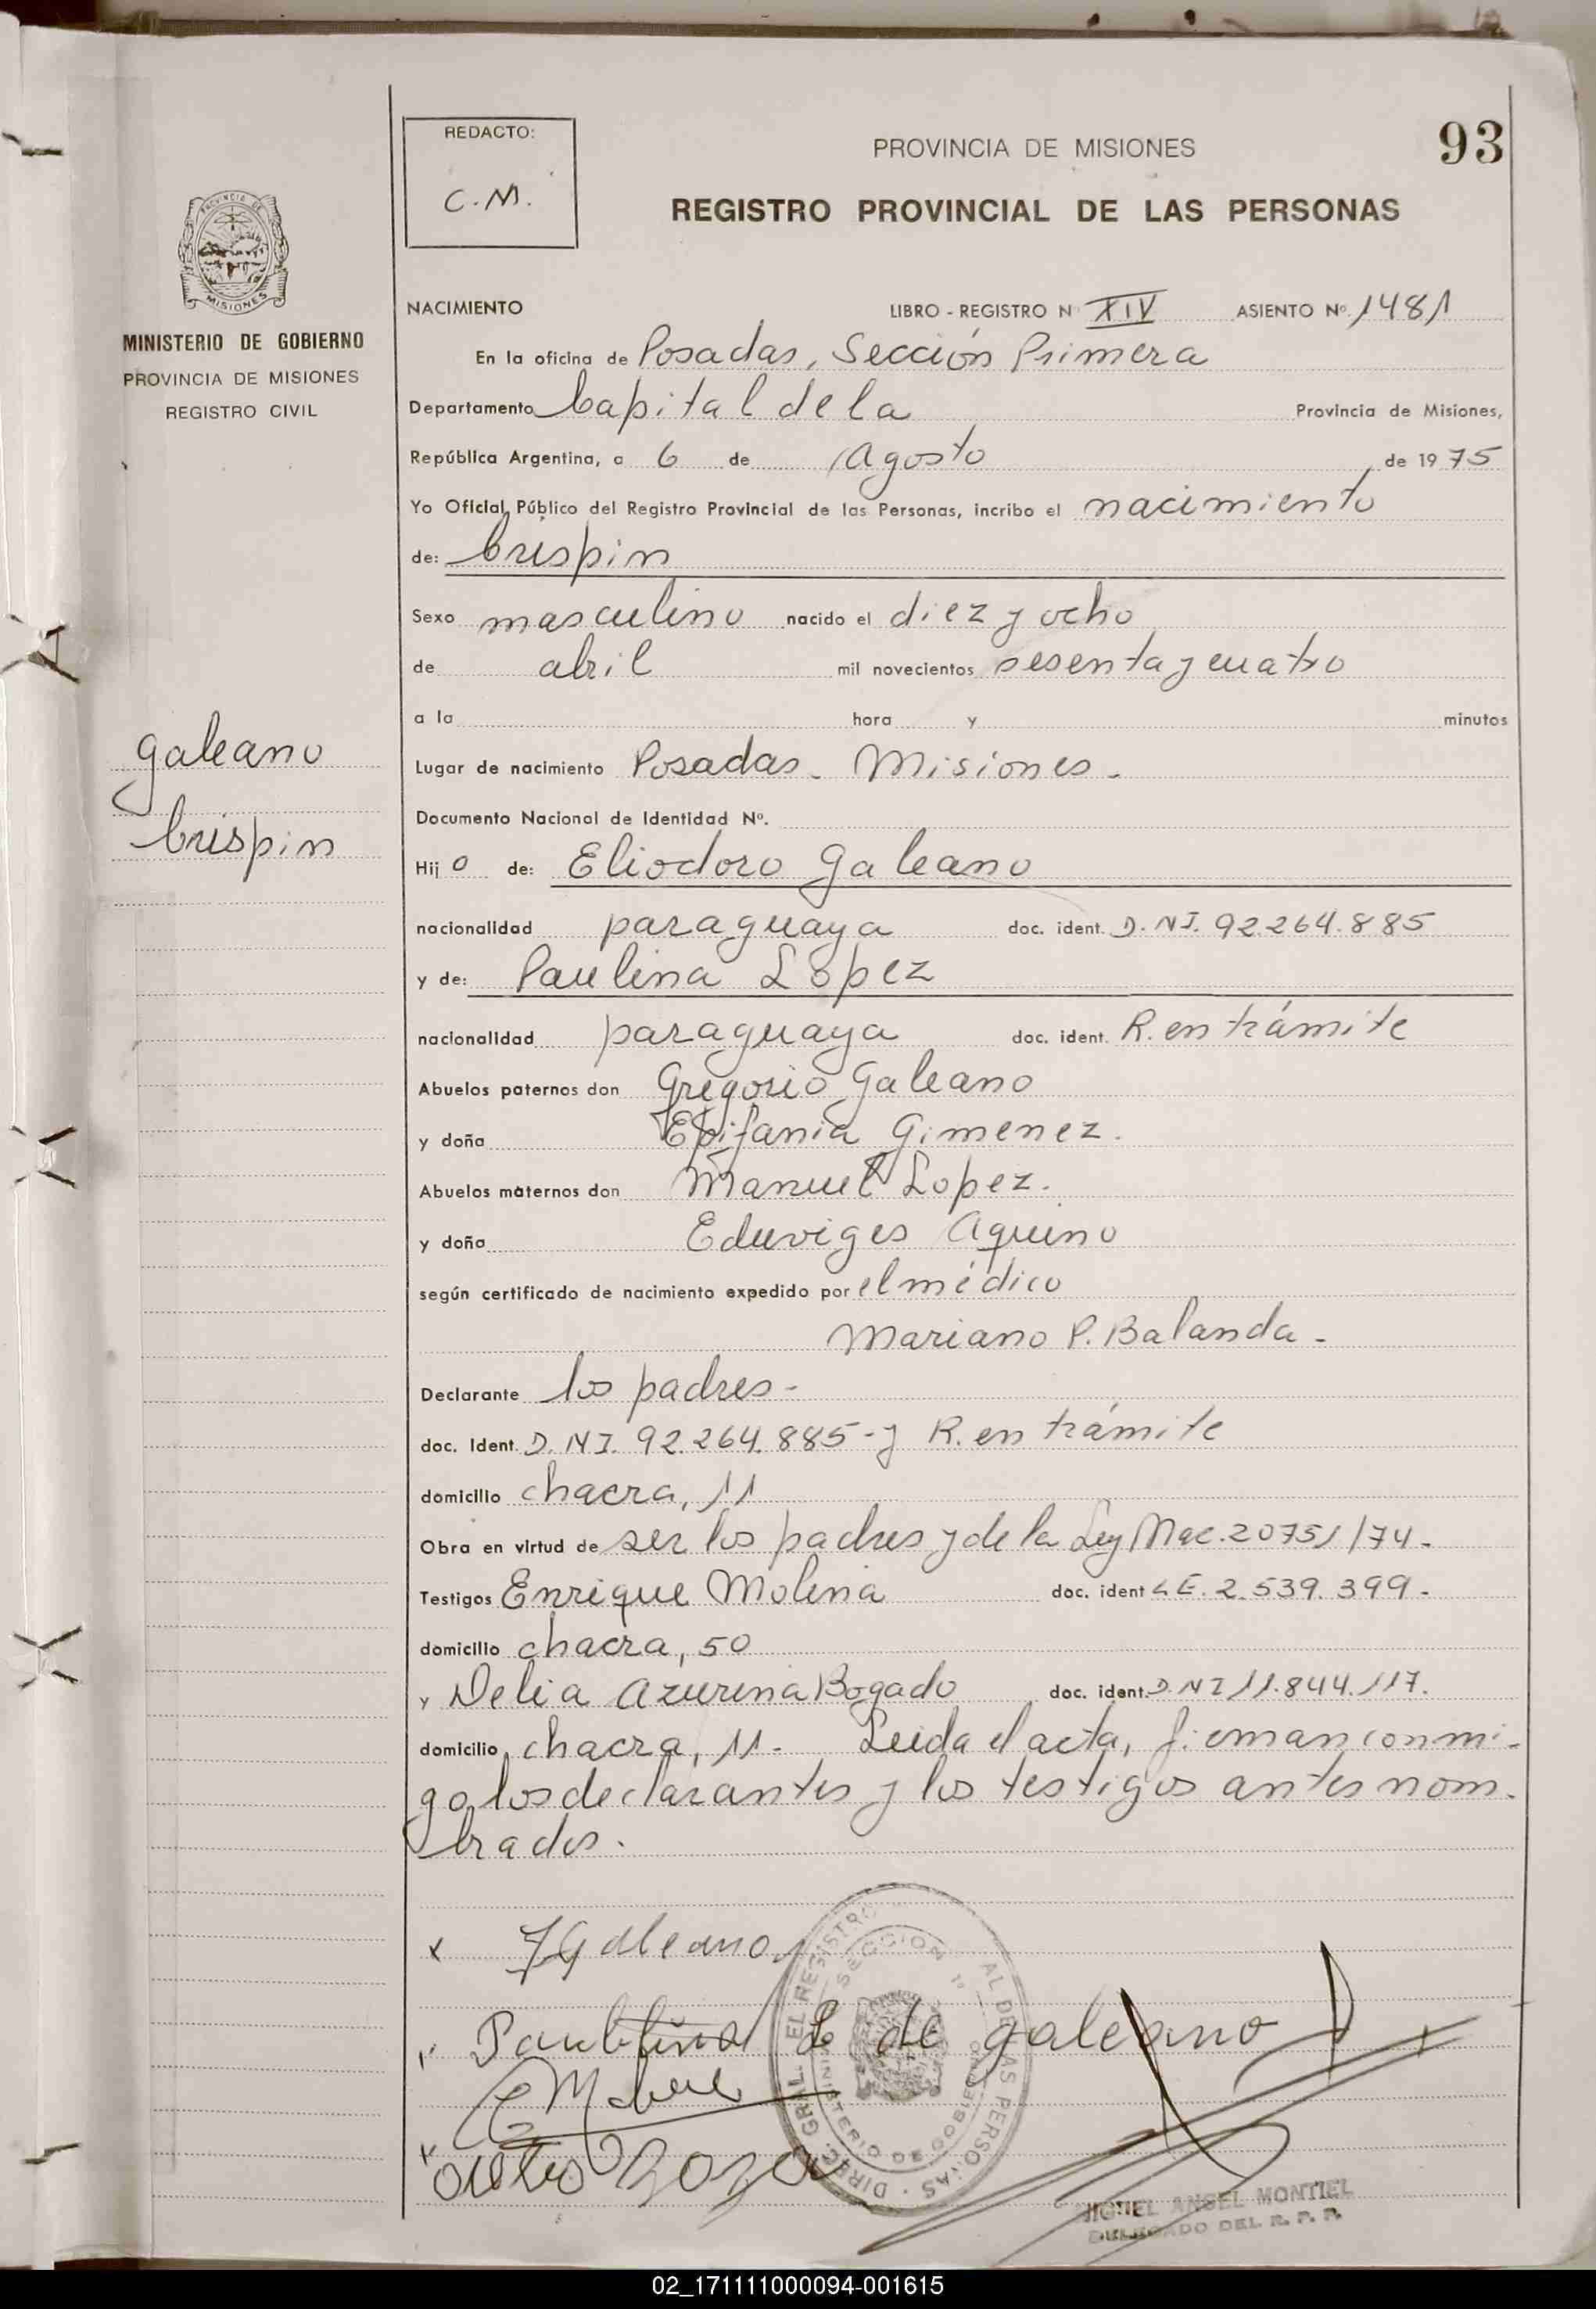 93
REDACTO:
C.M.
PROVINCIA DE MISIONES
REGISTRO PROVINCIAL DE LAS PERSONAS
PROVINCIA DE
MISIONES
MINISTERIO DE GOBIERNO
PROVINCIA DE MISIONES
REGISTRO CIVIL
NACIMIENTO LIBRO - REGISTRO N XIV ASIENTO Nº. 1481
En la oficina de Posadas, Sección Primera
Departamento Capital de la Provincia de Misiones,
República Argentina, a 6 de Agosto de 19 75
Yo Oficial Público del Registro Provincial de las Personas, incribo el nacimiento
de: Crispin
Sexo masculino nacido el diez y ocho
de abril mil novecientos sesenta y cuatro
a la hora y minutos
galeano
Crispin
Lugar de nacimiento Posadas. Misiones.
Documento Nacional de Identidad Nº.
Hij o de: Eliodoro galeano
nacionalidad paraguaya doc. ident. D.N.I. 92.264.885
y de: Paulina López
nacionalidad paraguaya doc. ident. R. en trámite
Abuelos paternos don Gregorio galeano
y doña Epifania Gimenez.
Abuelos maternos don Manuel Lopez.
y doña Eduviges Aquino
según certificado de nacimiento expedido por el médico
Mariano P. Balanda-
Declarante los padres-
doc. Ident. D.N.I. 92.264.885-y R. en trámite
domicilio chacra, 11
Obra en virtud de ser los padres y de la Ley Nac. 20751/74.
Testigos Enrique Molina doc. ident L.E. 2.539.399-
domicilio chacra, 50
y Delia Azurina Bogado doc. ident. D.N.I 11.844.117.
domicilio chacra, 11- Leida el acta, firman conmi-
go, los declarantes y los testigos antes nom-
brados.
x Galeano
Paulina L de galeano
DIREC. GRAL. EL REGISTRO AL DE LAS PERSONAS
SECCION 1º
MINISTERIO DE GOBIERNO
MIGUEL ANGEL MONTIEL
DELEGADO DEL R. P. P.
02_171111000094-001615